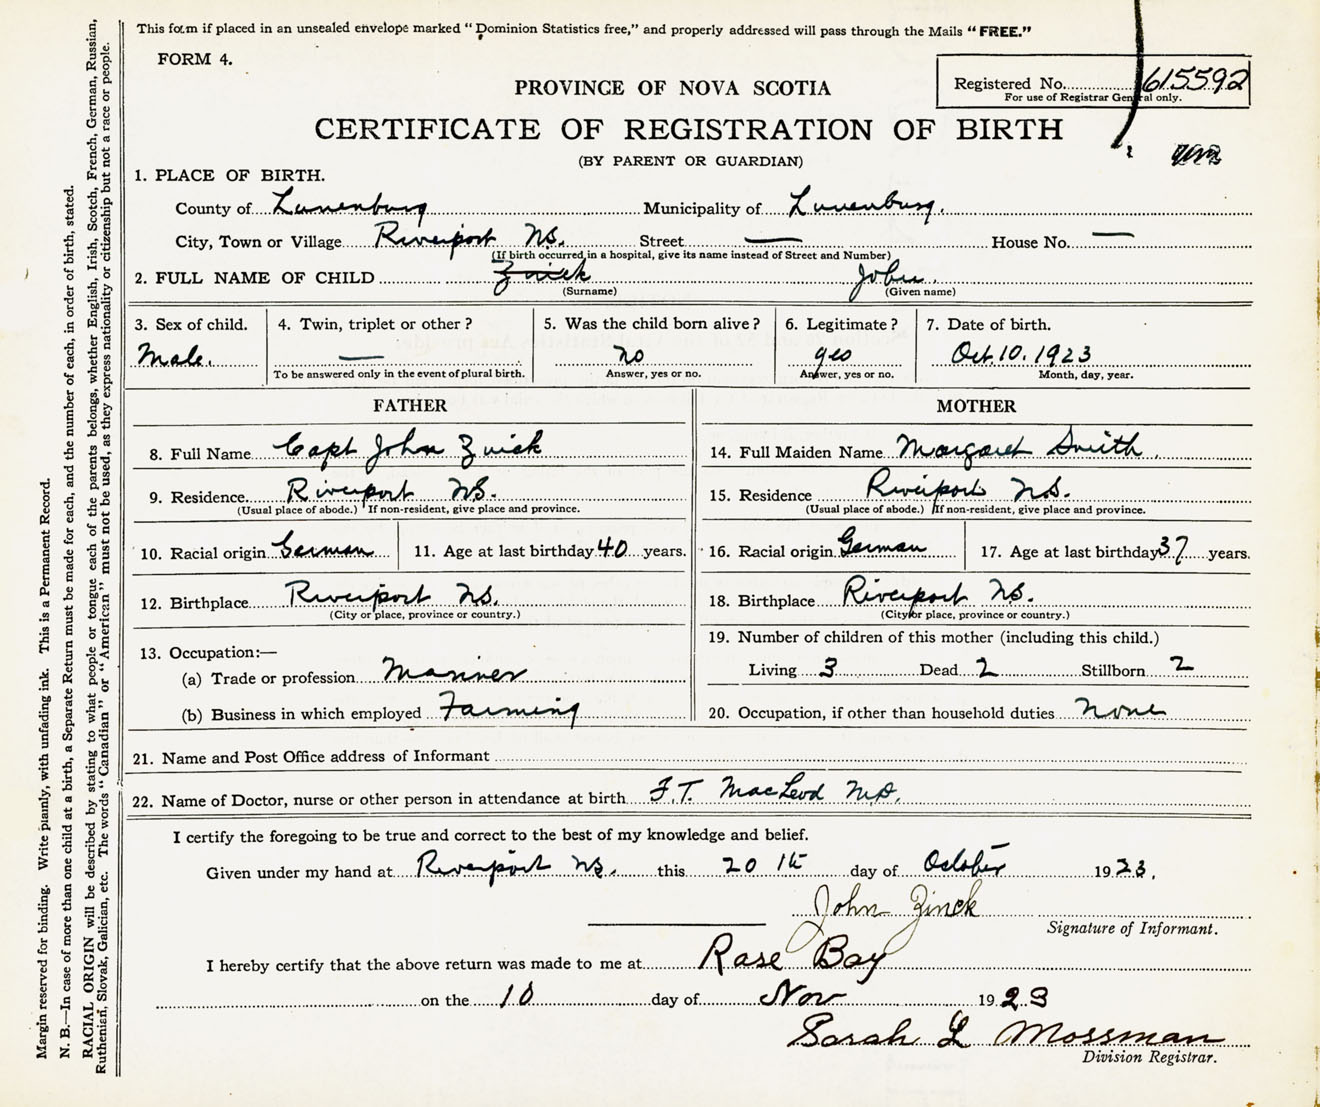 This form if placed in an unsealed envelope marked "Dominion Statistics free," and properly addressed will pass through the Mails "FREE."
FORM 4.
PROVINCE OF NOVA SCOTIA
Registered No. 615592
For use of Registrar General only.
CERTIFICATE OF REGISTRATION OF BIRTH
(BY PARENT OR GUARDIAN)
1. PLACE OF BIRTH.
County of Lunenburg Municipality of Lunenburg.
City, Town or Village Riverport N.S. Street — House No. —
(If birth occurred in a hospital, give its name instead of Street and Number)
2. FULL NAME OF CHILD Zinck John.
(Surname) (Given name)
3. Sex of child. 4. Twin, triplet or other? 5. Was the child born alive? 6. Legitimate? 7. Date of birth.
Male. — no yes Oct. 10. 1923
To be answered only in the event of plural birth. Answer, yes or no. Answer, yes or no. Month, day, year.
FATHER MOTHER
8. Full Name Capt John Zinck 14. Full Maiden Name Margaret Smith.
9. Residence Riverport N.S. 15. Residence Riverport N.S.
(Usual place of abode.) If non-resident, give place and province. (Usual place of abode.) If non-resident, give place and province.
10. Racial origin German 11. Age at last birthday 40 years. 16. Racial origin German 17. Age at last birthday 37 years.
12. Birthplace Riverport N.S. 18. Birthplace Riverport N.S.
(City or place, province or country.) (City or place, province or country.)
19. Number of children of this mother (including this child.)
13. Occupation:—
(a) Trade or profession Mariner Living 3 Dead 2 Stillborn 2
(b) Business in which employed Farming 20. Occupation, if other than household duties none
21. Name and Post Office address of Informant
22. Name of Doctor, nurse or other person in attendance at birth F.T. MacLeod M.D.
I certify the foregoing to be true and correct to the best of my knowledge and belief.
Given under my hand at Riverport N.S. this 20th day of October 1923.
John Zinck
Signature of Informant.
I hereby certify that the above return was made to me at Rose Bay
on the 10 day of Nov 1923
Sarah L Mossman
Division Registrar.
Margin reserved for binding. Write plainly, with unfading ink. This is a Permanent Record.
N. B.—In case of more than one child at a birth, a Separate Return must be made for each, and the number of each, in order of birth, stated.
RACIAL ORIGIN will be described by stating to what people or tongue each of the parents belongs, whether English, Irish, Scotch, French, German, Russian,
Ruthenian, Slovak, Galician, etc. The words "Canadian" or "American" must not be used, as they express nationality or citizenship but not a race or people.